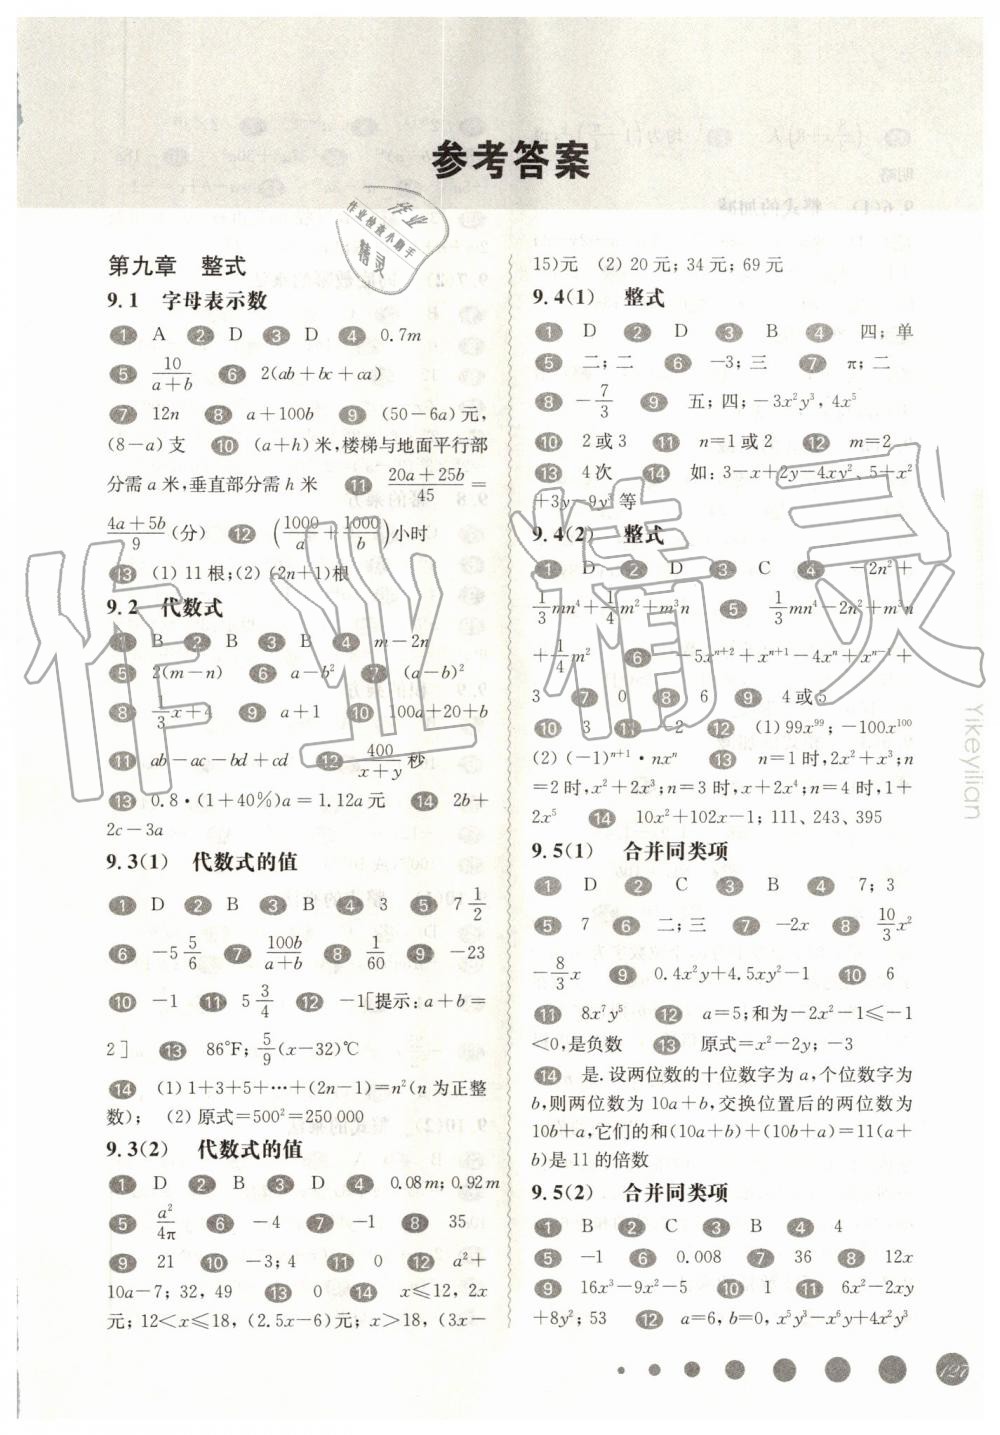 参考答案
第九章　整式
9.1　字母表示数
1 A 2 D 3 D 4 0.7m
5 10/(a+b) 6 2(ab+bc+ca)
7 12n 8 a+100b 9 (50-6a)元,
(8-a)支 10 (a+h)米,楼梯与地面平行部
分需a米,垂直部分需h米 11 (20a+25b)/45=
(4a+5b)/9(分) 12 (1000/a+1000/b)小时
13 (1) 11根;(2) (2n+1)根
9.2　代数式
1 B 2 B 3 B 4 m-2n
5 2(m-n) 6 a-b² 7 (a-b)²
8 1/3x+4 9 a+1 10 100a+20+b
11 ab-ac-bd+cd 12 400/(x+y)秒
13 0.8·(1+40%)a=1.12a元 14 2b+
2c-3a
9.3(1)　代数式的值
1 D 2 B 3 B 4 3 5 7 1/2
6 -5 5/6 7 100b/(a+b) 8 1/60 9 -23
10 -1 11 5 3/4 12 -1[提示:a+b=
2] 13 86°F;5/9(x-32)℃
14 (1) 1+3+5+…+(2n-1)=n²(n为正整
数); (2) 原式=500²=250 000
9.3(2)　代数式的值
1 D 2 B 3 D 4 0.08m;0.92m
5 a²/4π 6 -4 7 -1 8 35
9 21 10 -3;4 11 0 12 a²+
10a-7;32,49 13 0 14 x≤12,2x
元;12<x≤18,(2.5x-6)元;x>18,(3x-
15)元 (2) 20元;34元;69元
9.4(1)　整式
1 D 2 D 3 B 4 四;单
5 二;二 6 -3;三 7 π;二
8 -7/3 9 五;四;-3x²y³,4x⁵
10 2或3 11 n=1或2 12 m=2
13 4次 14 如:3-x+2y-4xy²、5+x²
+3y-9y³等
9.4(2)　整式
1 D 2 D 3 C 4 -2n²+
1/3mn⁴+1/4m²+m³n 5 1/3mn⁴-2n²+m³n
+1/4m² 6 -5xⁿ⁺²+xⁿ⁺¹-4xⁿ+xⁿ⁻¹+
3 7 0 8 6 9 4或5
10 3 11 -2 12 (1) 99x⁹⁹;-100x¹⁰⁰
(2) (-1)ⁿ⁺¹·nxⁿ 13 n=1时,2x²+2x³;n
=2时,x²+2x³;n=3时,x+2x⁴;n=4时,1+
2x⁵ 14 10x²+102x-1;111、243、395
9.5(1)　合并同类项
1 D 2 C 3 B 4 7;3
5 7 6 二;三 7 -2x 8 10/3x²
-8/3x 9 0.4x²y+4.5xy²-1 10 6
11 8x⁷y⁵ 12 a=5;和为-2x²-1≤-1
<0,是负数 13 原式=x²-2y;-3
14 是.设两位数的十位数字为a,个位数字为
b,则两位数为10a+b,交换位置后的两位数为
10b+a,它们的和(10a+b)+(10b+a)=11(a+
b)是11的倍数
9.5(2)　合并同类项
1 B 2 C 3 B 4 4
5 -1 6 0.008 7 36 8 12x
9 16x³-9x²-5 10 1 11 6x²-2xy
+8y²;53 12 a=6,b=0,x⁵y³-x⁶y+4x²y³
Yikeyilian
127
作业精灵
作业
作业检查小助手
精灵